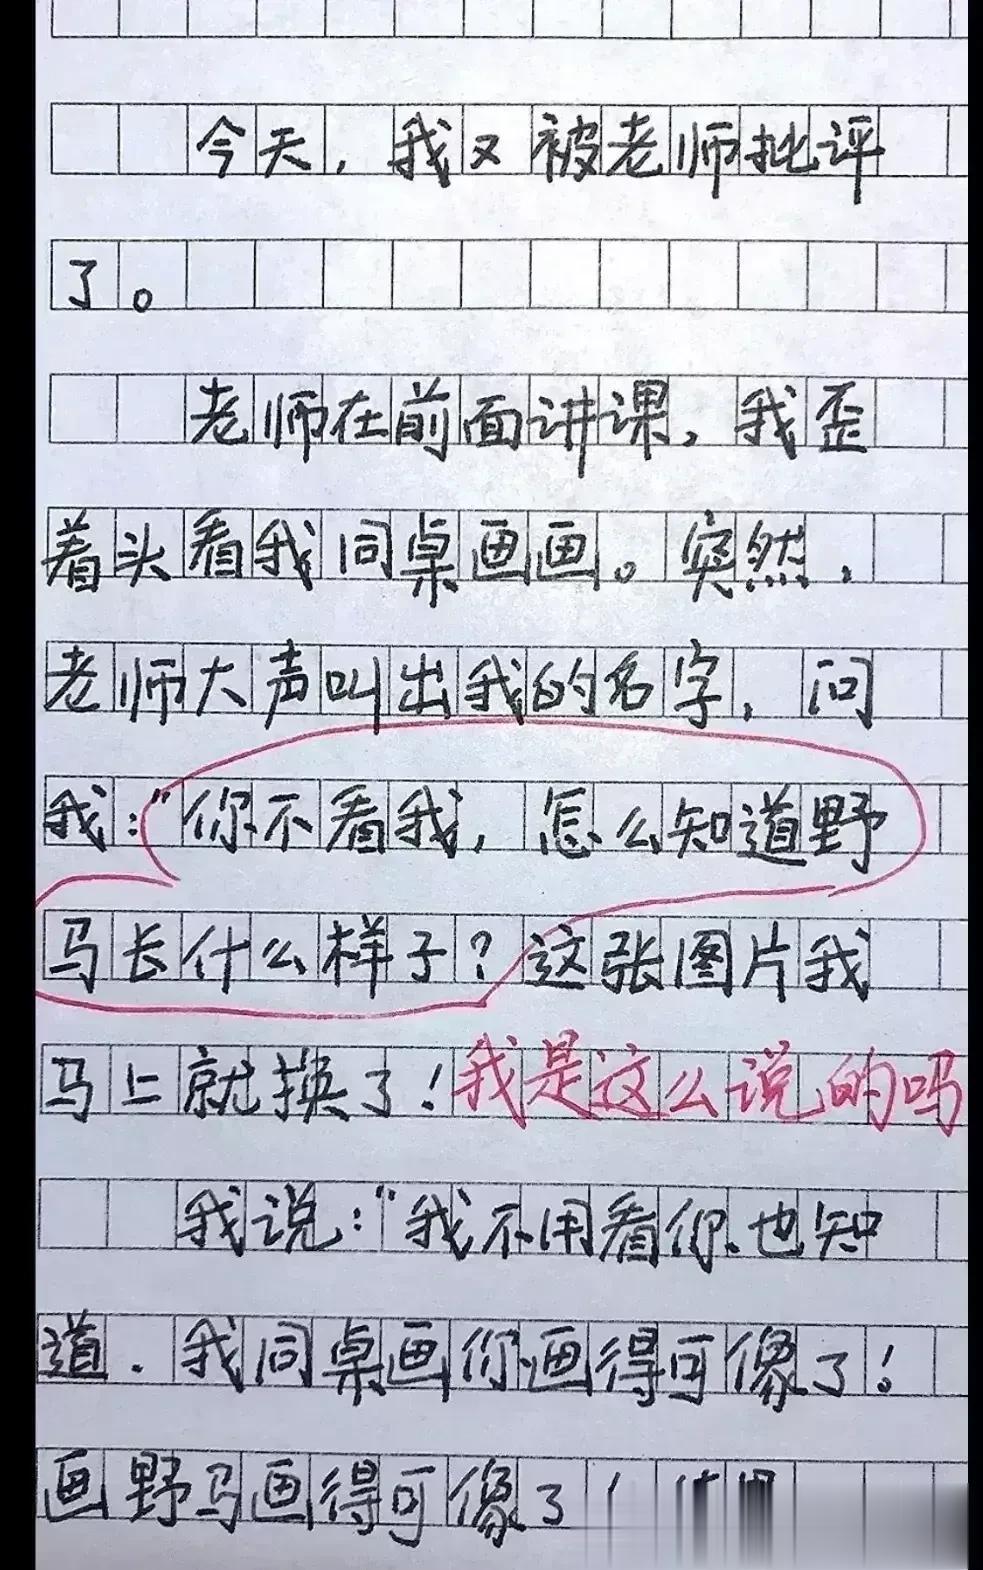 今天，我又被老师批评
了。
老师在前面讲课，我歪
着头看我同桌画画。突然，
老师大声叫出我的名字，问
我：“你不看我，怎么知道野
马长什么样子？这张图片我
马上就换了！我是这么说的吗
我说：“我不用看你也知
道．我同桌画你画得可像了！
画野马画得可像了！